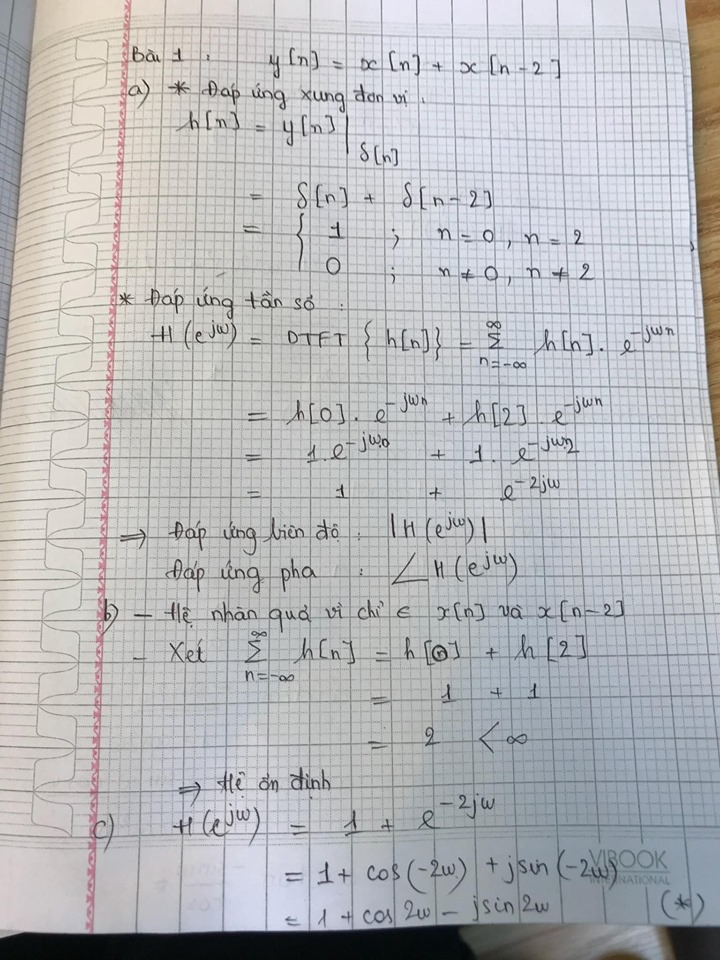 Bài 1 : y[n] = x[n] + x[n-2]
a) * Đáp ứng xung đơn vị :
h[n] = y[n] | δ[n]
= δ[n] + δ[n-2]
= { 1 ; n = 0, n = 2
0 ; n ≠ 0, n ≠ 2
* Đáp ứng tần số :
H(e^jω) = DTFT {h[n]} = Σ_{n=-∞}^{∞} h[n]. e^-jωn
= h[0]. e^-jωn + h[2]. e^-jωn
= 1. e^-jω.0 + 1. e^-jω.2
= 1 + e^-2jω
⇒ Đáp ứng biên độ : |H(e^jω)|
Đáp ứng pha : ∠H(e^jω)
b) - Hệ nhân quả vì chỉ ∈ x[n] và x[n-2]
- Xét Σ_{n=-∞}^{∞} h[n] = h[0] + h[2]
= 1 + 1
= 2 < ∞
⇒ Hệ ổn định
c) H(e^jω) = 1 + e^-2jω
= 1 + cos(-2ω) + jsin(-2ω)
= 1 + cos 2ω - jsin 2ω (*)
VIBOOK
INTERNATIONAL